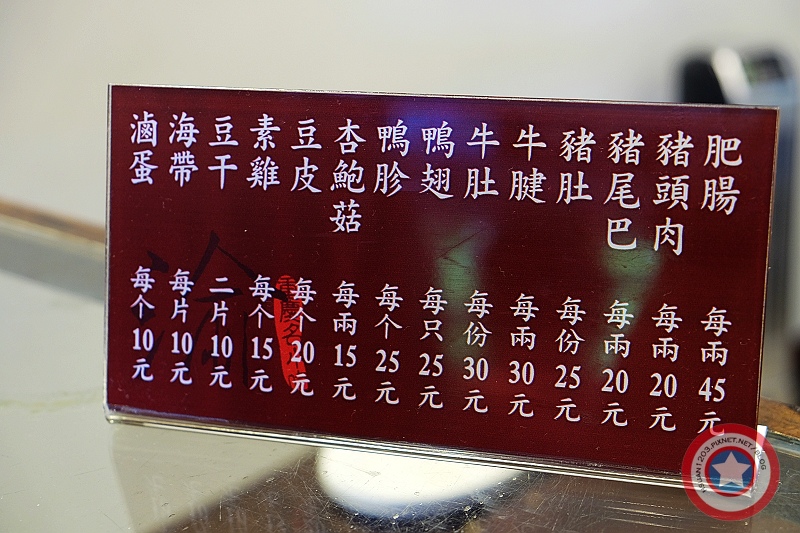 肥腸 每兩45元
豬頭肉 每兩20元
豬尾巴 每兩20元
豬肚 每份25元
牛腱 每兩30元
牛肚 每份30元
鴨翅 每只25元
鴨胗 每个25元
杏鮑菇 每兩15元
豆皮 每个20元
素雞 每个15元
豆干 二片10元
海帶 每片10元
滷蛋 每个10元
渝